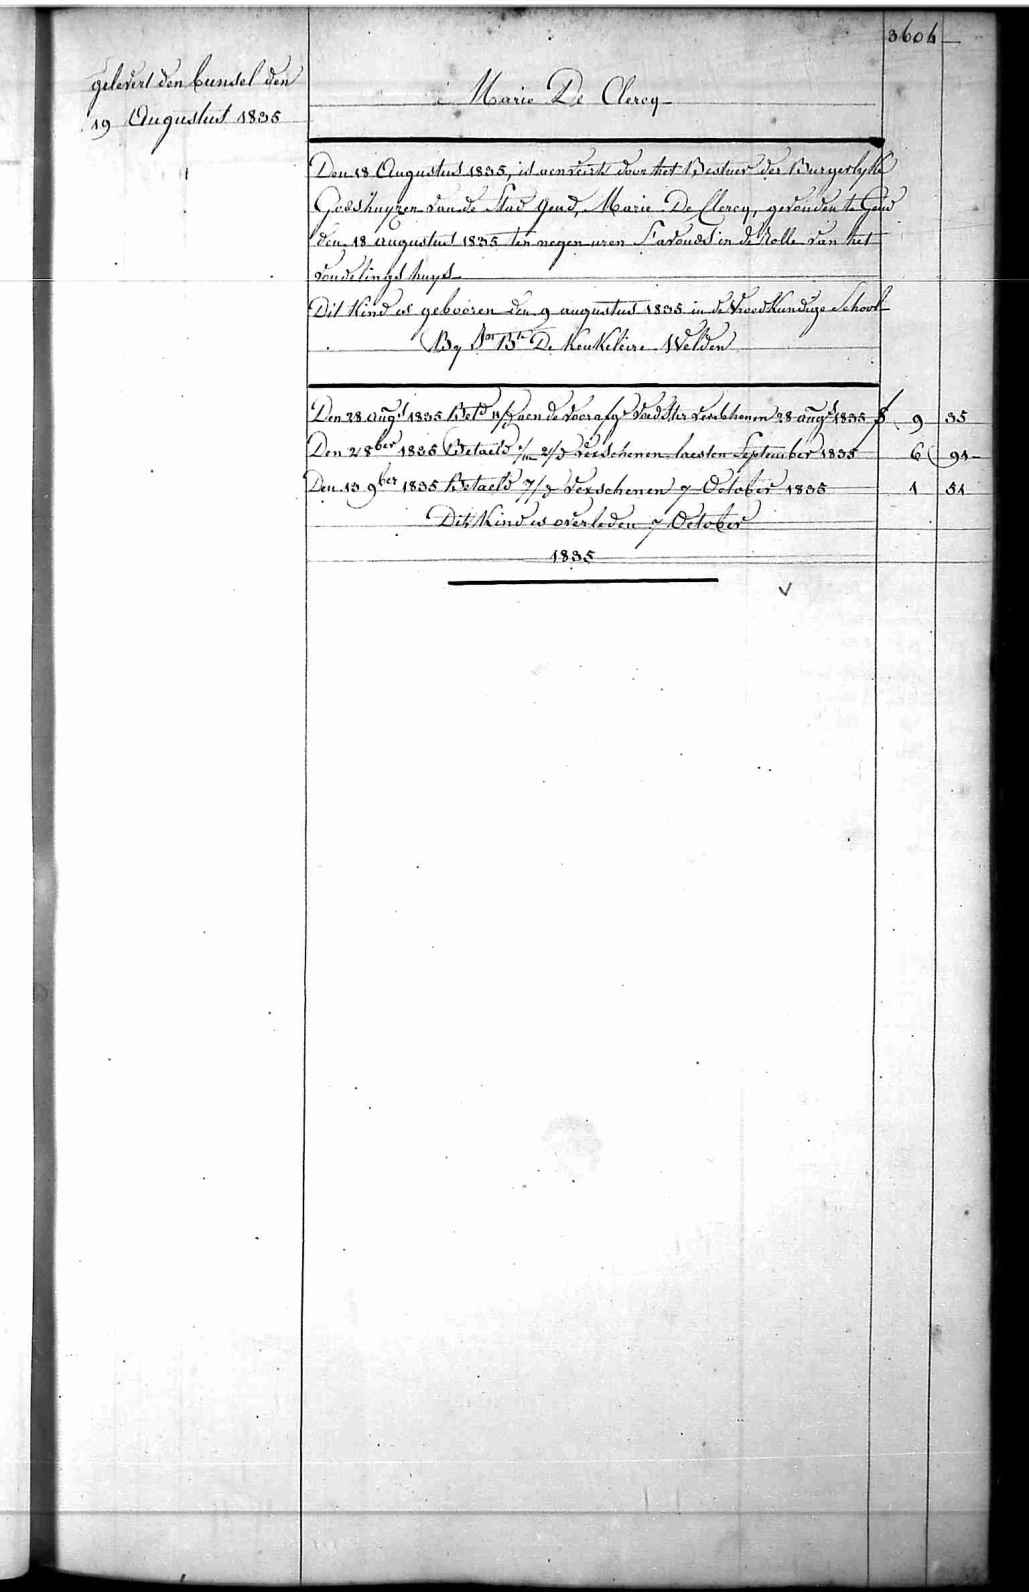 3604
gelevert den bunsel den
19 Augustus 1835
Marie De Clercq
Den 18 Augustus 1835, is aenveirt door het Bestuer der Burgerlyke
Godshuyzen van de Stad Gend, Marie De Clercq, gevonden te Gend
den 18 augustus 1835 ten negen uren s'avonds in de Rolle van het
vondelings huys
Dit Kind is gebooren den 9 augustus 1835 in de Vroedkundige School
By De Keukeleire Welden
Den 28 augs 1835 Betd aen de voorafge verschenen 28 augs 1835 f 9 35
Den 2 8ber 1835 Betaeld verschenen laesten September 1835 6 91
Den 13 9ber 1835 Betaeld verschenen 7 October 1835 1 51
Dit Kind is overleden 7 October
1835